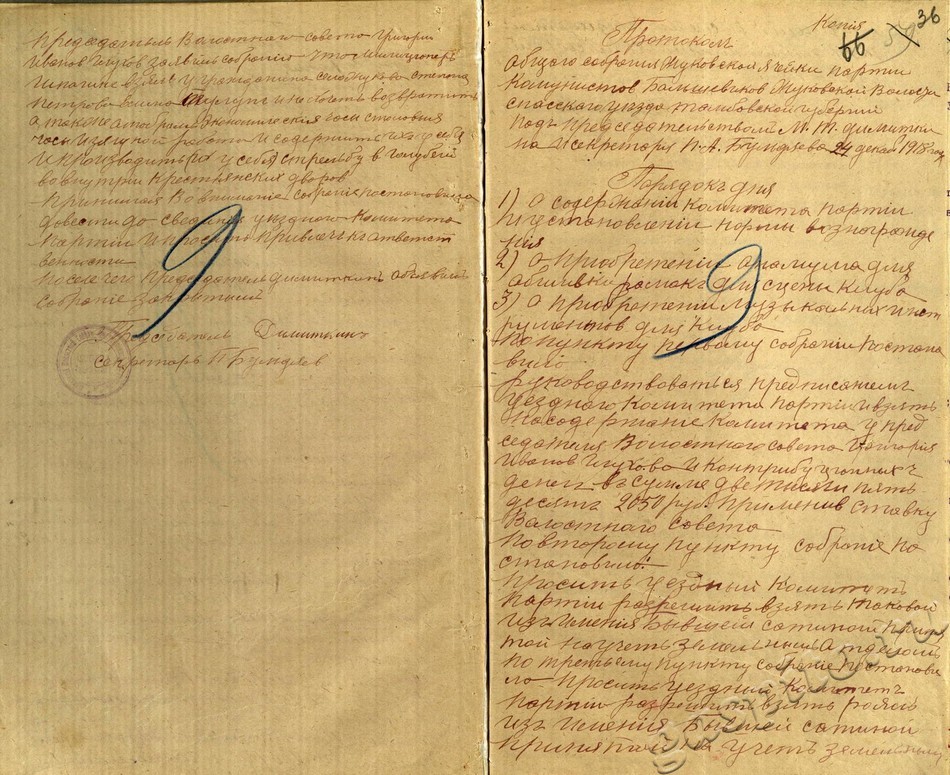 Председатель Валостнаго совета Григорий
Иванов заявил собранию что милиционер
взял у гражданина села Жукова Степана
Петрова и не хочет возвратить
а также экономические часы столовыя
часы изящной работы и содержит их у себя
и производить у себя стрельбу в голубей
во внутри крестьянских дворов
Принимая во внимание собрание постановило
довести до сведения уезднаго комитета
партии и просить привлеч к ответст
венности
после чего председатель Димиткин объявил
собрание закрытым
Председатель Димиткин
секретарь П Бундяев
Копия
66 59 36
Протокол
общаго собрания Жуковской ячейки партии
Комунистов Балшевиков Жуковской Волости
спасскаго уезда тамбовской губернии
подъ председательством М. Т. Димитки
на и секретаря П. А. Бундяева 24 декаб 1918 году
Порядокъ дня
1) о содержании комитета партии
и установлении нормы вознагражде
ния
2) о приобретении для
обшивки рамак для сцены клуба
3) о приобретении музыкалных инст
рументов для клуба
по пункту первому собрание постано
вило
руководствоваться предписанием
уезднаго комитета партии и взять
на содержание комитета у пред
седателя Волостного совета Григория
Иванов и контрибуционных
денег въ сумме две тысячи пять
десят 2050 руб. применив ставку
Валостнаго совета
По второму пункту собрание по
становило:
просить уездный комитетъ
партии разрешить взять таковой
из имения бывшей сатиной приня
той на учет земелным отделом
по третьему пункту собрание постанови
ло просить уездный комитетъ
партии разрешить взять рояль
из имения бывшей сатиной
принятой на учетъ земелным